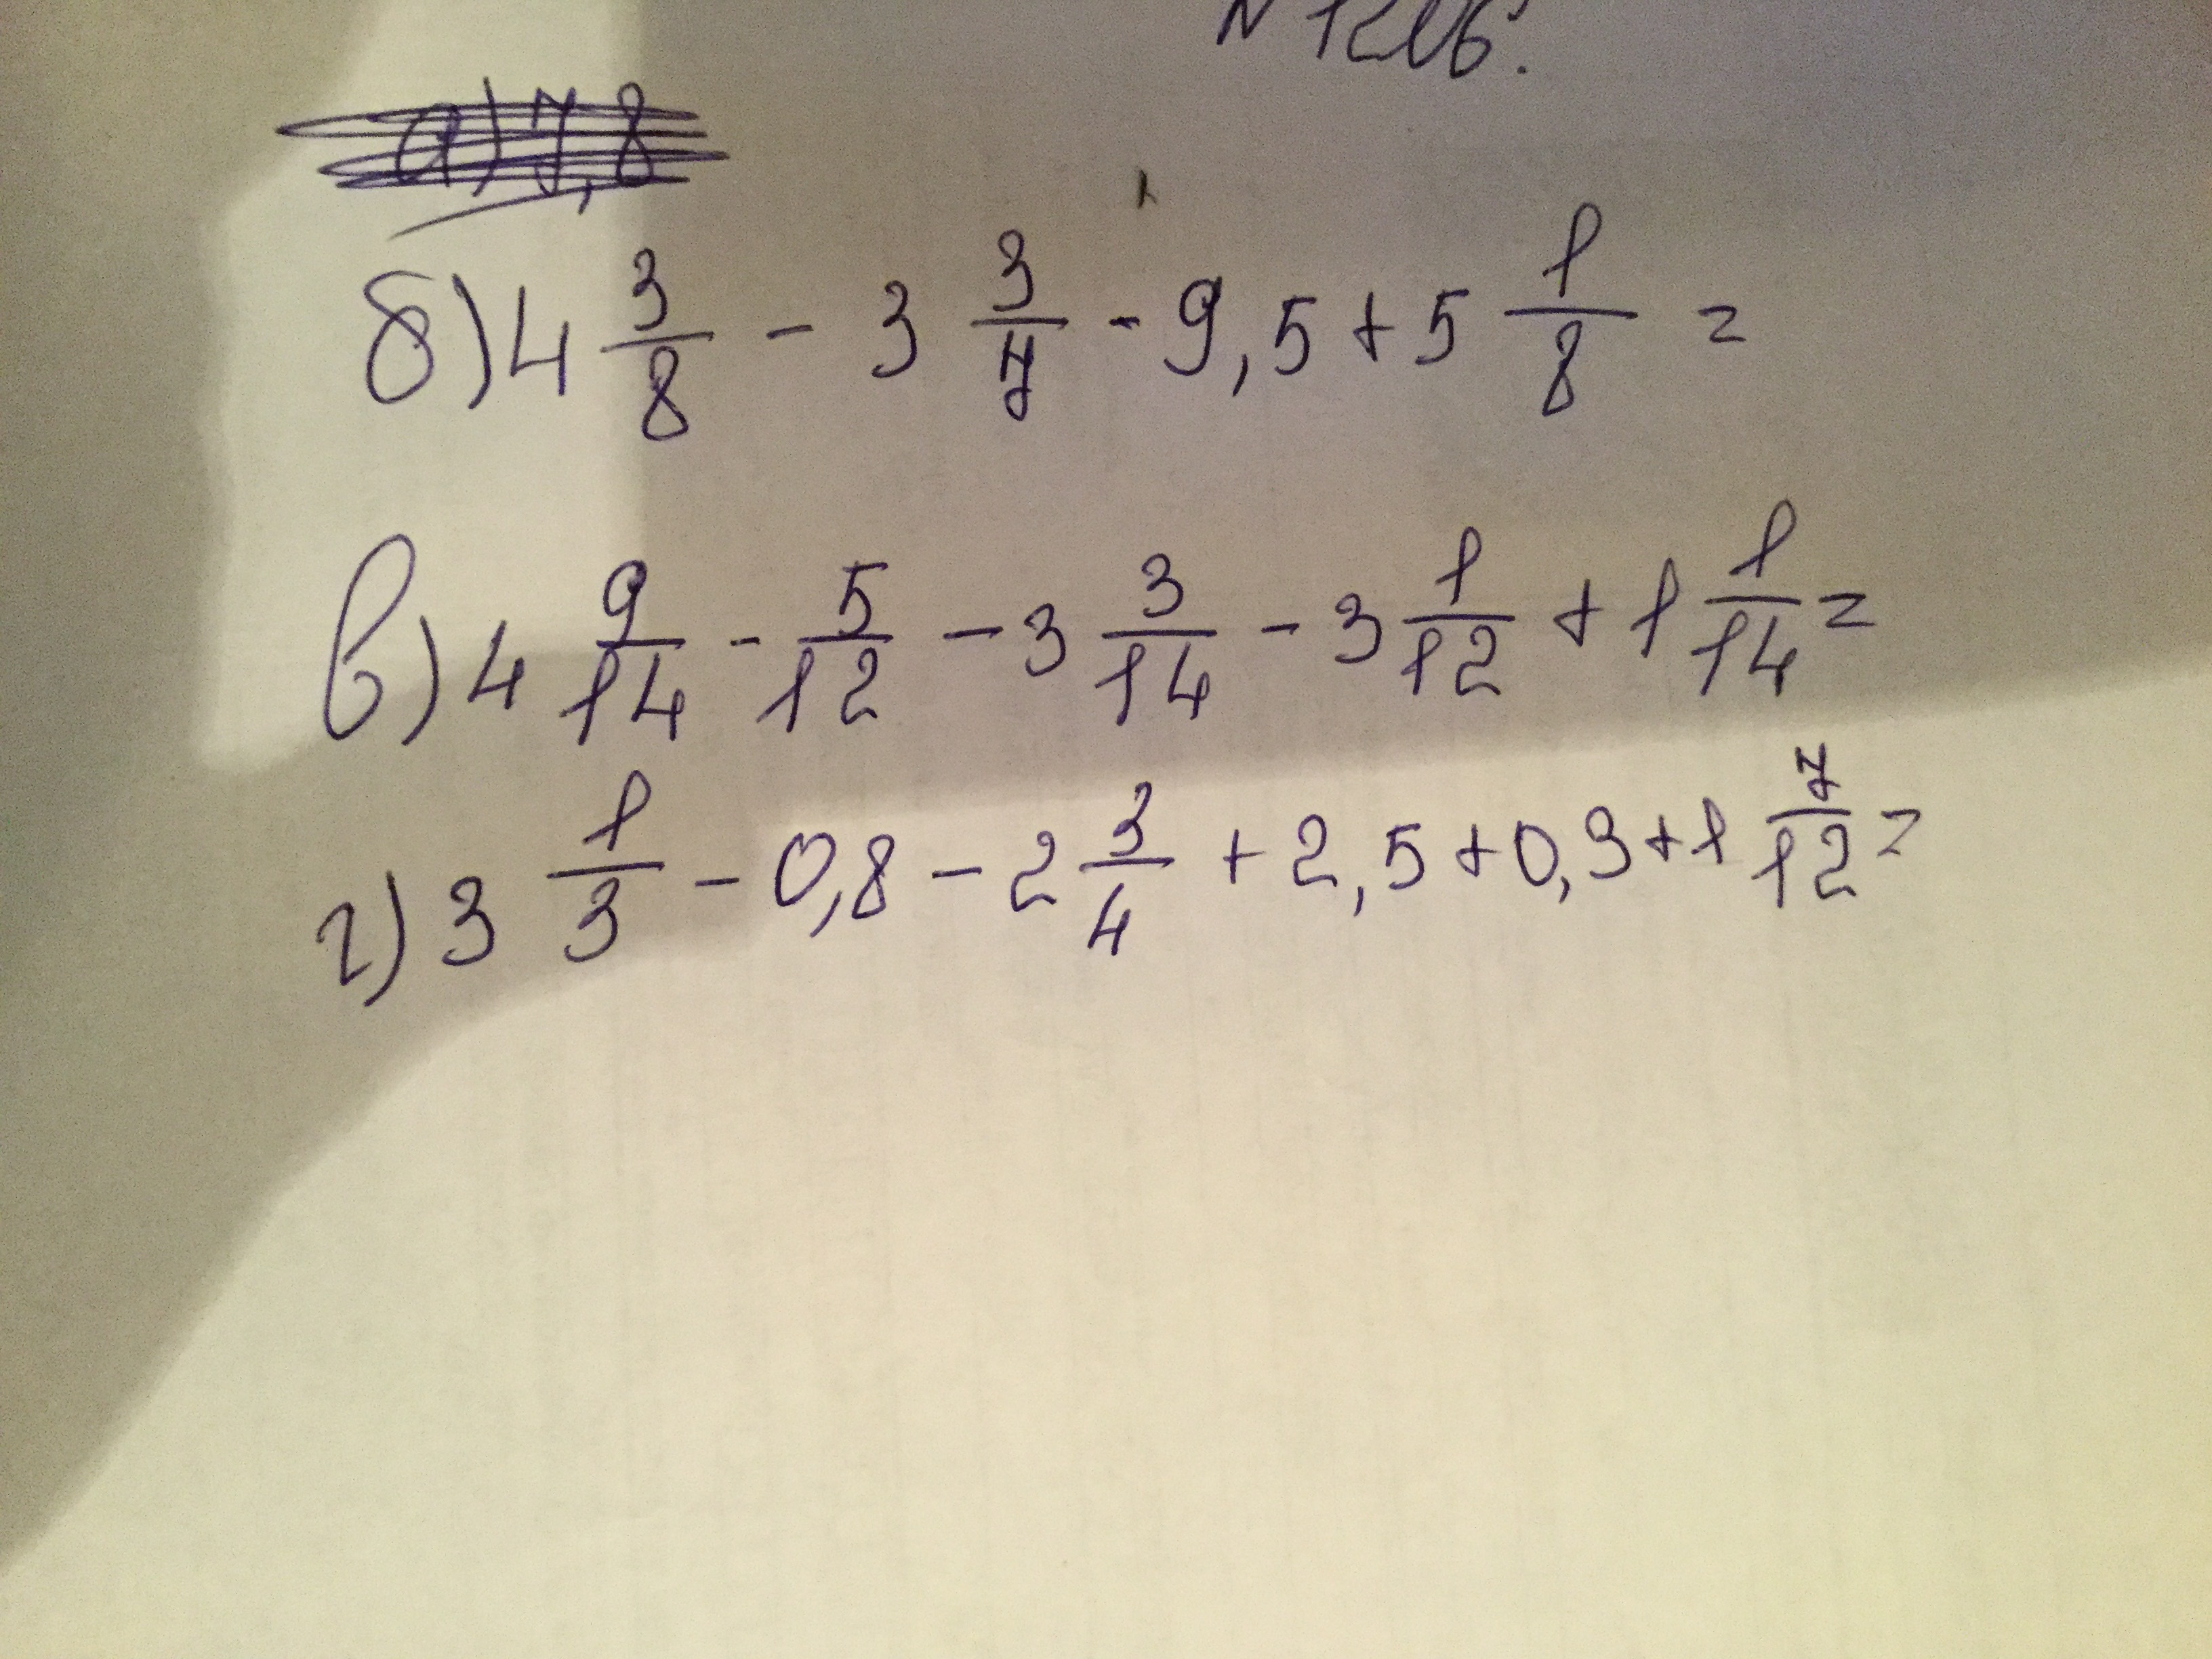 б) 4 3/8 - 3 3/7 - 9,5 + 5 1/8 =
в) 4 9/14 - 5/12 - 3 3/14 - 3 1/12 + 1 1/14 =
г) 3 1/3 - 0,8 - 2 3/4 + 2,5 + 0,3 + 1 7/12 =